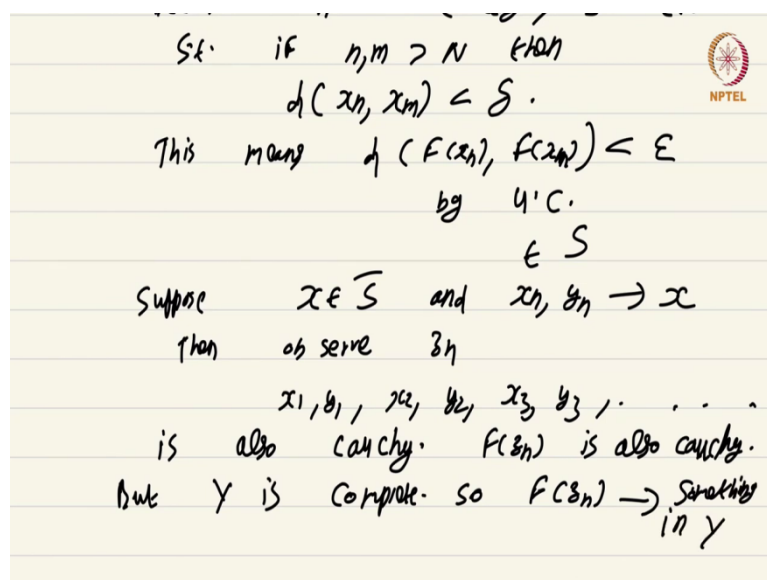 S.t. if n,m > N then
NPTEL
d(xn, xm) < δ.
This means d(F(xn), F(xm)) < ε
by u.c.
∈ S
Suppose x ∈ S̅ and xn, yn → x
Then observe zn
x1, y1, x2, y2, x3, y3, . . . .
is also cauchy. F(zn) is also cauchy.
But Y is complete. so F(zn) → Something
in Y